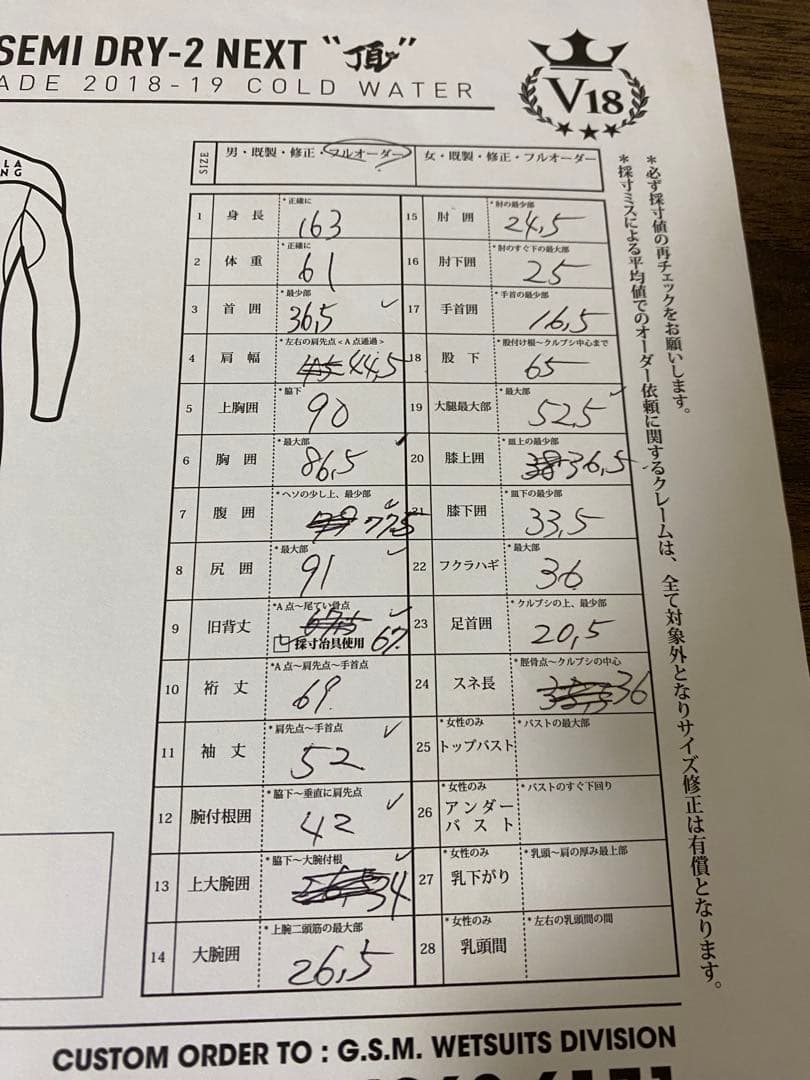 SEMI DRY-2 NEXT “頂”
ADE 2018-19 COLD WATER
V18
LA
NG
SIZE 男・既製・修正・フルオーダー 女・既製・修正・フルオーダー
1 身長 *正確に 163
2 体重 *正確に 61
3 首囲 *最少部 36,5
4 肩幅 *左右の肩先点<A点通過> 44,5
5 上胸囲 *脇下 90
6 胸囲 *最大部 86,5
7 腹囲 *ヘソの少し上、最少部 77,5
8 尻囲 *最大部 91
9 旧背丈 *A点〜尾てい骨点 67,5 採寸治具使用 67
10 裄丈 *A点〜肩先点〜手首点 69
11 袖丈 *肩先点〜手首点 52
12 腕付根囲 *脇下〜垂直に肩先点 42
13 上大腕囲 *脇下〜大腕付根 34
14 大腕囲 *上腕二頭筋の最大部 26,5
15 肘囲 *肘の最少部 24,5
16 肘下囲 *肘のすぐ下の最大部 25
17 手首囲 *手首の最少部 16,5
18 股下 *股付け根〜クルブシ中心まで 65
19 大腿最大部 *最大部 52,5
20 膝上囲 *皿上の最少部 38 36,5
21 膝下囲 *皿下の最少部 33,5
22 フクラハギ *最大部 36
23 足首囲 *クルブシの上、最少部 20,5
24 スネ長 *脛骨点〜クルブシの中心 36
25 *女性のみ トップバスト *バストの最大部
26 *女性のみ アンダーバスト *バストのすぐ下回り
27 *女性のみ 乳下がり *乳頭〜肩の厚み最上部
28 *女性のみ 乳頭間 *左右の乳頭間の間
*必ず採寸値の再チェックをお願いします。
*採寸ミスによる平均値でのオーダー依頼に関するクレームは、全て対象外となりサイズ修正は有償となります。
CUSTOM ORDER TO : G.S.M. WETSUITS DIVISION